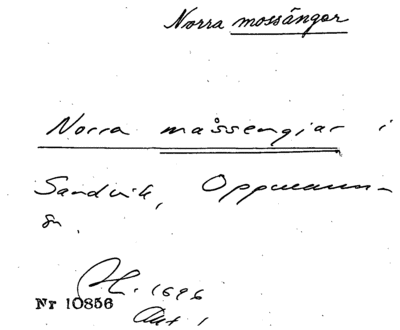 Norra mossängar
Norra måssengiar i
Sandvik, Oppmanna-
sn.
1696
Nr 10856
Akt 1